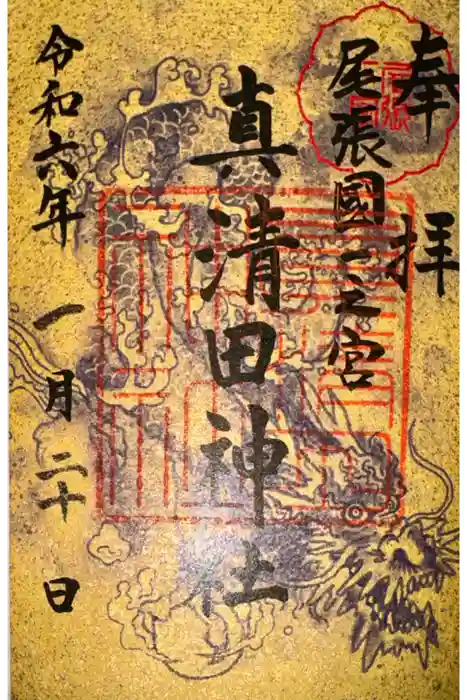 奉拝
尾張國一之宮
真清田神社
令和六年 一月 二十 日